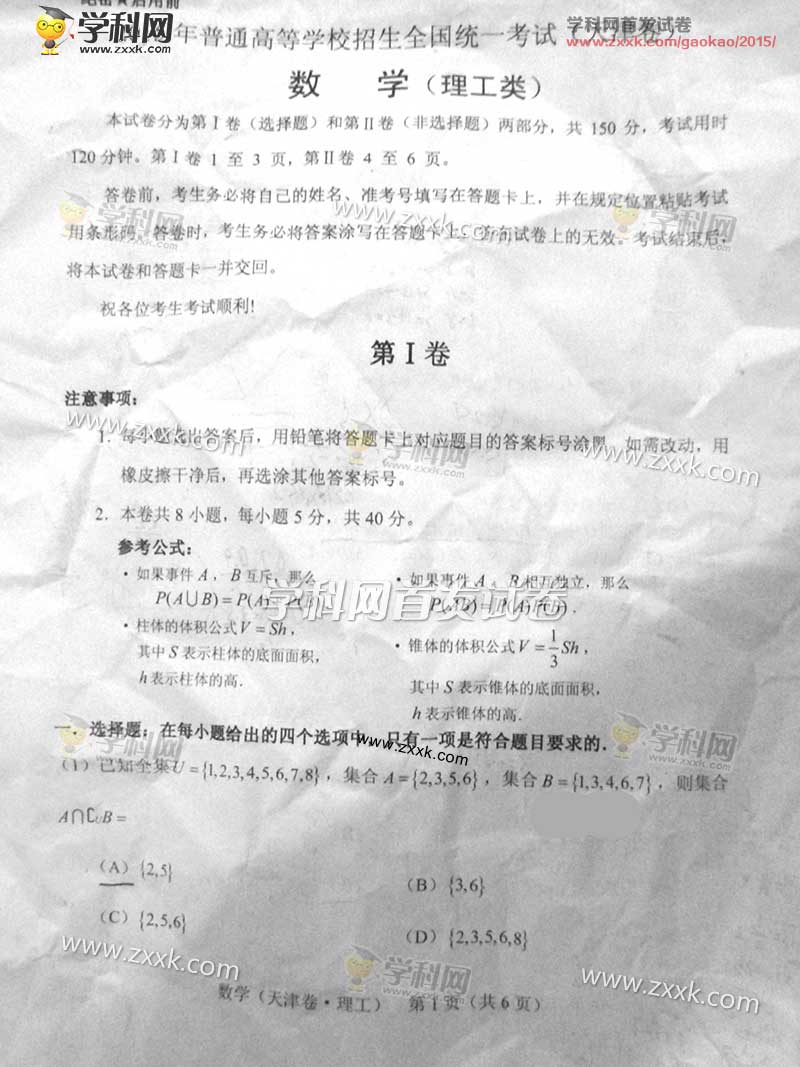 绝密★启用前
学科网首发试卷
www.zxxk.com/gaokao/2015/
年普通高等学校招生全国统一考试（天津卷）
数 学（理工类）
本试卷分为第Ⅰ卷（选择题）和第Ⅱ卷（非选择题）两部分，共 150 分，考试用时
120 分钟。第Ⅰ卷 1 至 3 页，第Ⅱ卷 4 至 6 页。
答卷前，考生务必将自己的姓名、准考号填写在答题卡上，并在规定位置粘贴考试
用条形码。答卷时，考生务必将答案涂写在答题卡上，答在试卷上的无效。考试结束后，
将本试卷和答题卡一并交回。
祝各位考生考试顺利!
第Ⅰ卷
注意事项：
1. 每小题选出答案后，用铅笔将答题卡上对应题目的答案标号涂黑。如需改动，用
橡皮擦干净后，再选涂其他答案标号。
2. 本卷共 8 小题，每小题 5 分，共 40 分。
参考公式：
· 如果事件 A ，B 互斥，那么
P(A∪B) = P(A)+P(B).
· 如果事件 A 、B 相互独立，那么
P(AB) = P(A)P(B).
· 柱体的体积公式 V = Sh，
其中 S 表示柱体的底面面积，
h 表示柱体的高.
· 锥体的体积公式 V = 1/3 Sh，
其中 S 表示锥体的底面面积，
h 表示锥体的高.
一. 选择题：在每小题给出的四个选项中，只有一项是符合题目要求的.
(1) 已知全集U = {1,2,3,4,5,6,7,8}，集合 A = {2,3,5,6}，集合 B = {1,3,4,6,7}，则集合
A∩∁UB =
(A) {2,5}
(B) {3,6}
(C) {2,5,6}
(D) {2,3,5,6,8}
数学（天津卷·理工） 第 1 页（共 6 页）
学科网
www.zxxk.com
学科网首发试卷